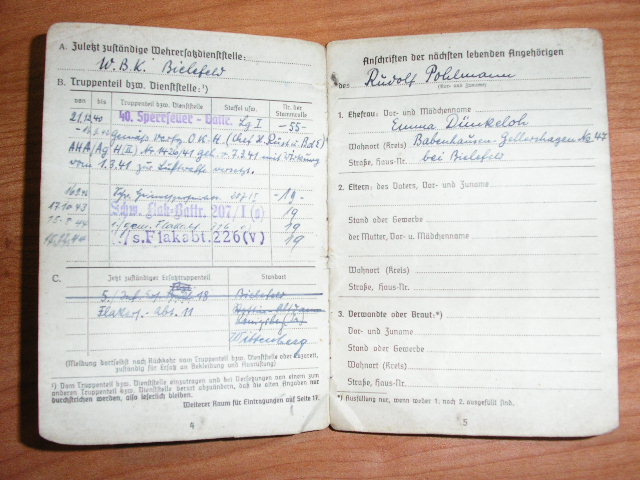 A. Zuletzt zuständige Wehrersatzdienststelle:
W.B.K. Bielefeld
B. Truppenteil bzw. Dienststelle:¹)
von bis Truppenteil bzw. Dienststelle Staffel usw. Nr. der Stammrolle
21.12.40 40. Sperrfeuer-Battr. Lg I -55-
gemäß Verfg. O.K.H. (Chef H. Rüst u. BdE)
AHA/Ag H. Nr. 1426/41 geh. v. 7.7.41 mit Wirkung
vom 1.9.41 zur Luftwaffe versetzt.
-19-
17.10.43 Schw. Flak-Battr. 207/I (o) 19
s. Flakabt. 226 (v) 19
C. Jetzt zuständiger Ersatztruppenteil Standort
18 Bielefeld
Flakers.-Abt. 11
Wittenberg
(Meldung dortselbst nach Rückkehr vom Truppenteil bzw. Dienststelle oder Lazarett,
zuständig für Ersatz an Bekleidung und Ausrüstung)
¹) Vom Truppenteil einzutragen und bei Versetzungen von einem zum
anderen Truppenteil bzw. Dienststelle derart abzuändern, daß die alten Angaben nur
durchstrichen werden, also leserlich bleiben.
Weiterer Raum für Eintragungen auf Seite 17.
4
Anschriften der nächsten lebenden Angehörigen
des Rudolf Pohlmann
(Vor- und Zuname)
1. Ehefrau: Vor- und Mädchenname
Emma Dünkeloh
Wohnort (Kreis) Babenhausen-Gellershagen No 47
Straße, Haus-Nr. bei Bielefeld
2. Eltern: des Vaters, Vor- und Zuname
Stand oder Gewerbe
der Mutter, Vor- u. Mädchenname
Wohnort (Kreis)
Straße, Haus-Nr.
3. Verwandte oder Braut:*)
Vor- und Zuname
Stand oder Gewerbe
Wohnort (Kreis)
Straße, Haus-Nr.
*) Ausfüllung nur, wenn weder 1. noch 2. ausgefüllt sind.
5